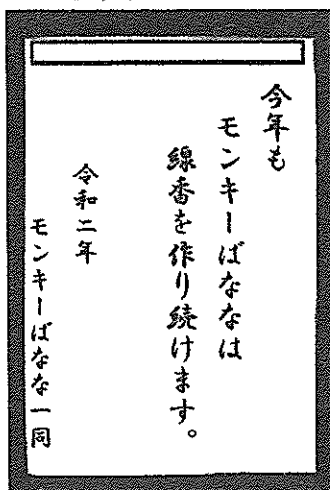 今年も
モンキーばななは
線香を作り続けます。
令和二年
モンキーばなな一同